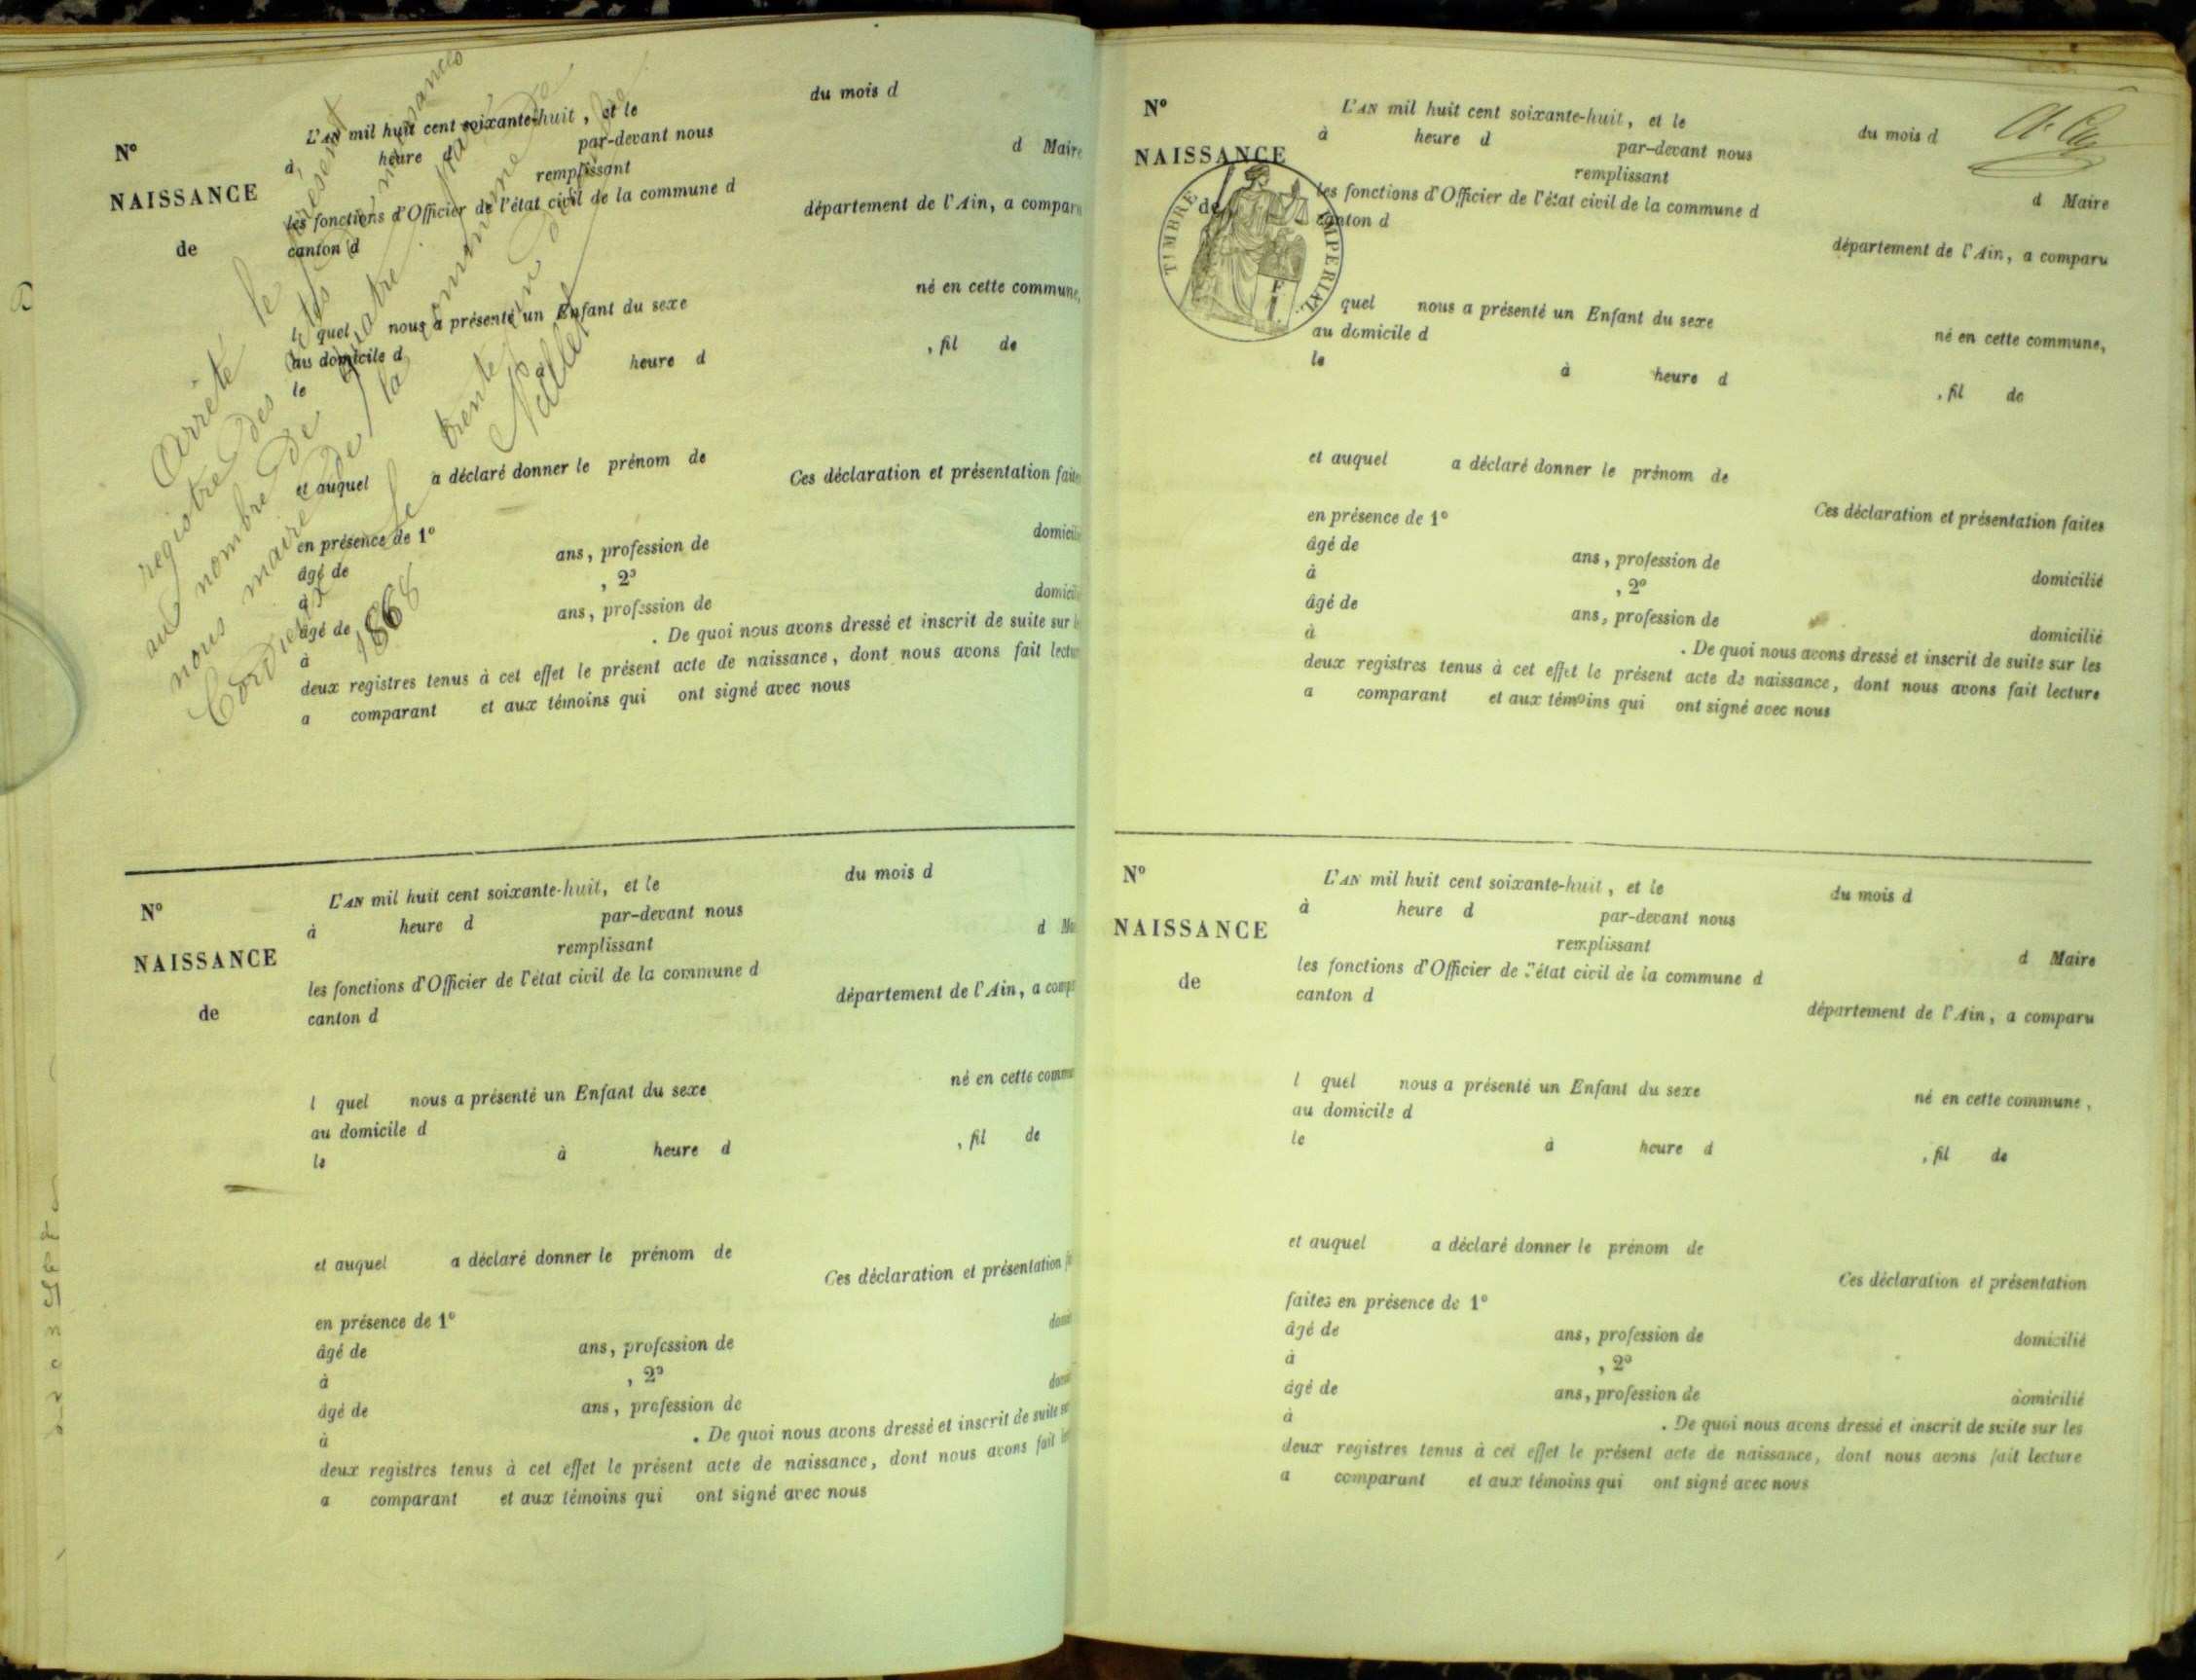 Nº
NAISSANCE
de
L'AN mil huit cent soixante-huit, et le
du mois d
à heure d par-devant nous
d Maire
remplissant
les fonctions d'Officier de l'état civil de la commune d
canton d
département de l'Ain, a comparu
l quel nous a présenté un Enfant du sexe
né en cette commune,
au domicile d
le à heure d
, fil de
et auquel a déclaré donner le prénom de
Ces déclaration et présentation faites
en présence de 1º
âgé de ans, profession de
domicilié
à , 2º
âgé de ans, profession de
domicilié
à . De quoi nous avons dressé et inscrit de suite sur les
deux registres tenus à cet effet le présent acte de naissance, dont nous avons fait lecture
a comparant et aux témoins qui ont signé avec nous
Arrêté le présent
registre des actes de naissances
au nombre de quatre
nous maire de la commune de
Cordieux le trente un
1868
Nallet
Nº
NAISSANCE
de
L'AN mil huit cent soixante-huit, et le
du mois d
à heure d par-devant nous
d Mai
remplissant
les fonctions d'Officier de l'état civil de la commune d
canton d
département de l'Ain, a comp
l quel nous a présenté un Enfant du sexe
né en cette commu
au domicile d
le à heure d
, fil de
et auquel a déclaré donner le prénom de
Ces déclaration et présentation
en présence de 1º
âgé de ans, profession de
domi
à , 2º
âgé de ans, profession de
domi
à . De quoi nous avons dressé et inscrit de suite sur
deux registres tenus à cet effet le présent acte de naissance, dont nous avons fait
a comparant et aux témoins qui ont signé avec nous
Nº
NAISSANCE
de
TIMBRE IMPERIAL
L'AN mil huit cent soixante-huit, et le
du mois d
à heure d par-devant nous
d Maire
remplissant
les fonctions d'Officier de l'état civil de la commune d
canton d
département de l'Ain, a comparu
quel nous a présenté un Enfant du sexe
né en cette commune,
au domicile d
le à heure d
, fil de
et auquel a déclaré donner le prénom de
Ces déclaration et présentation faites
en présence de 1º
âgé de ans, profession de
domicilié
à , 2º
âgé de ans, profession de
domicilié
à . De quoi nous avons dressé et inscrit de suite sur les
deux registres tenus à cet effet le présent acte de naissance, dont nous avons fait lecture
a comparant et aux témoins qui ont signé avec nous
Nº
NAISSANCE
de
L'AN mil huit cent soixante-huit, et le
du mois d
à heure d par-devant nous
d Maire
remplissant
les fonctions d'Officier de l'état civil de la commune d
canton d
département de l'Ain, a comparu
l quel nous a présenté un Enfant du sexe
né en cette commune,
au domicile d
le à heure d
, fil de
et auquel a déclaré donner le prénom de
Ces déclaration et présentation
faites en présence de 1º
âgé de ans, profession de
domicilié
à , 2º
âgé de ans, profession de
domicilié
à . De quoi nous avons dressé et inscrit de suite sur les
deux registres tenus à cet effet le présent acte de naissance, dont nous avons fait lecture
a comparant et aux témoins qui ont signé avec nous